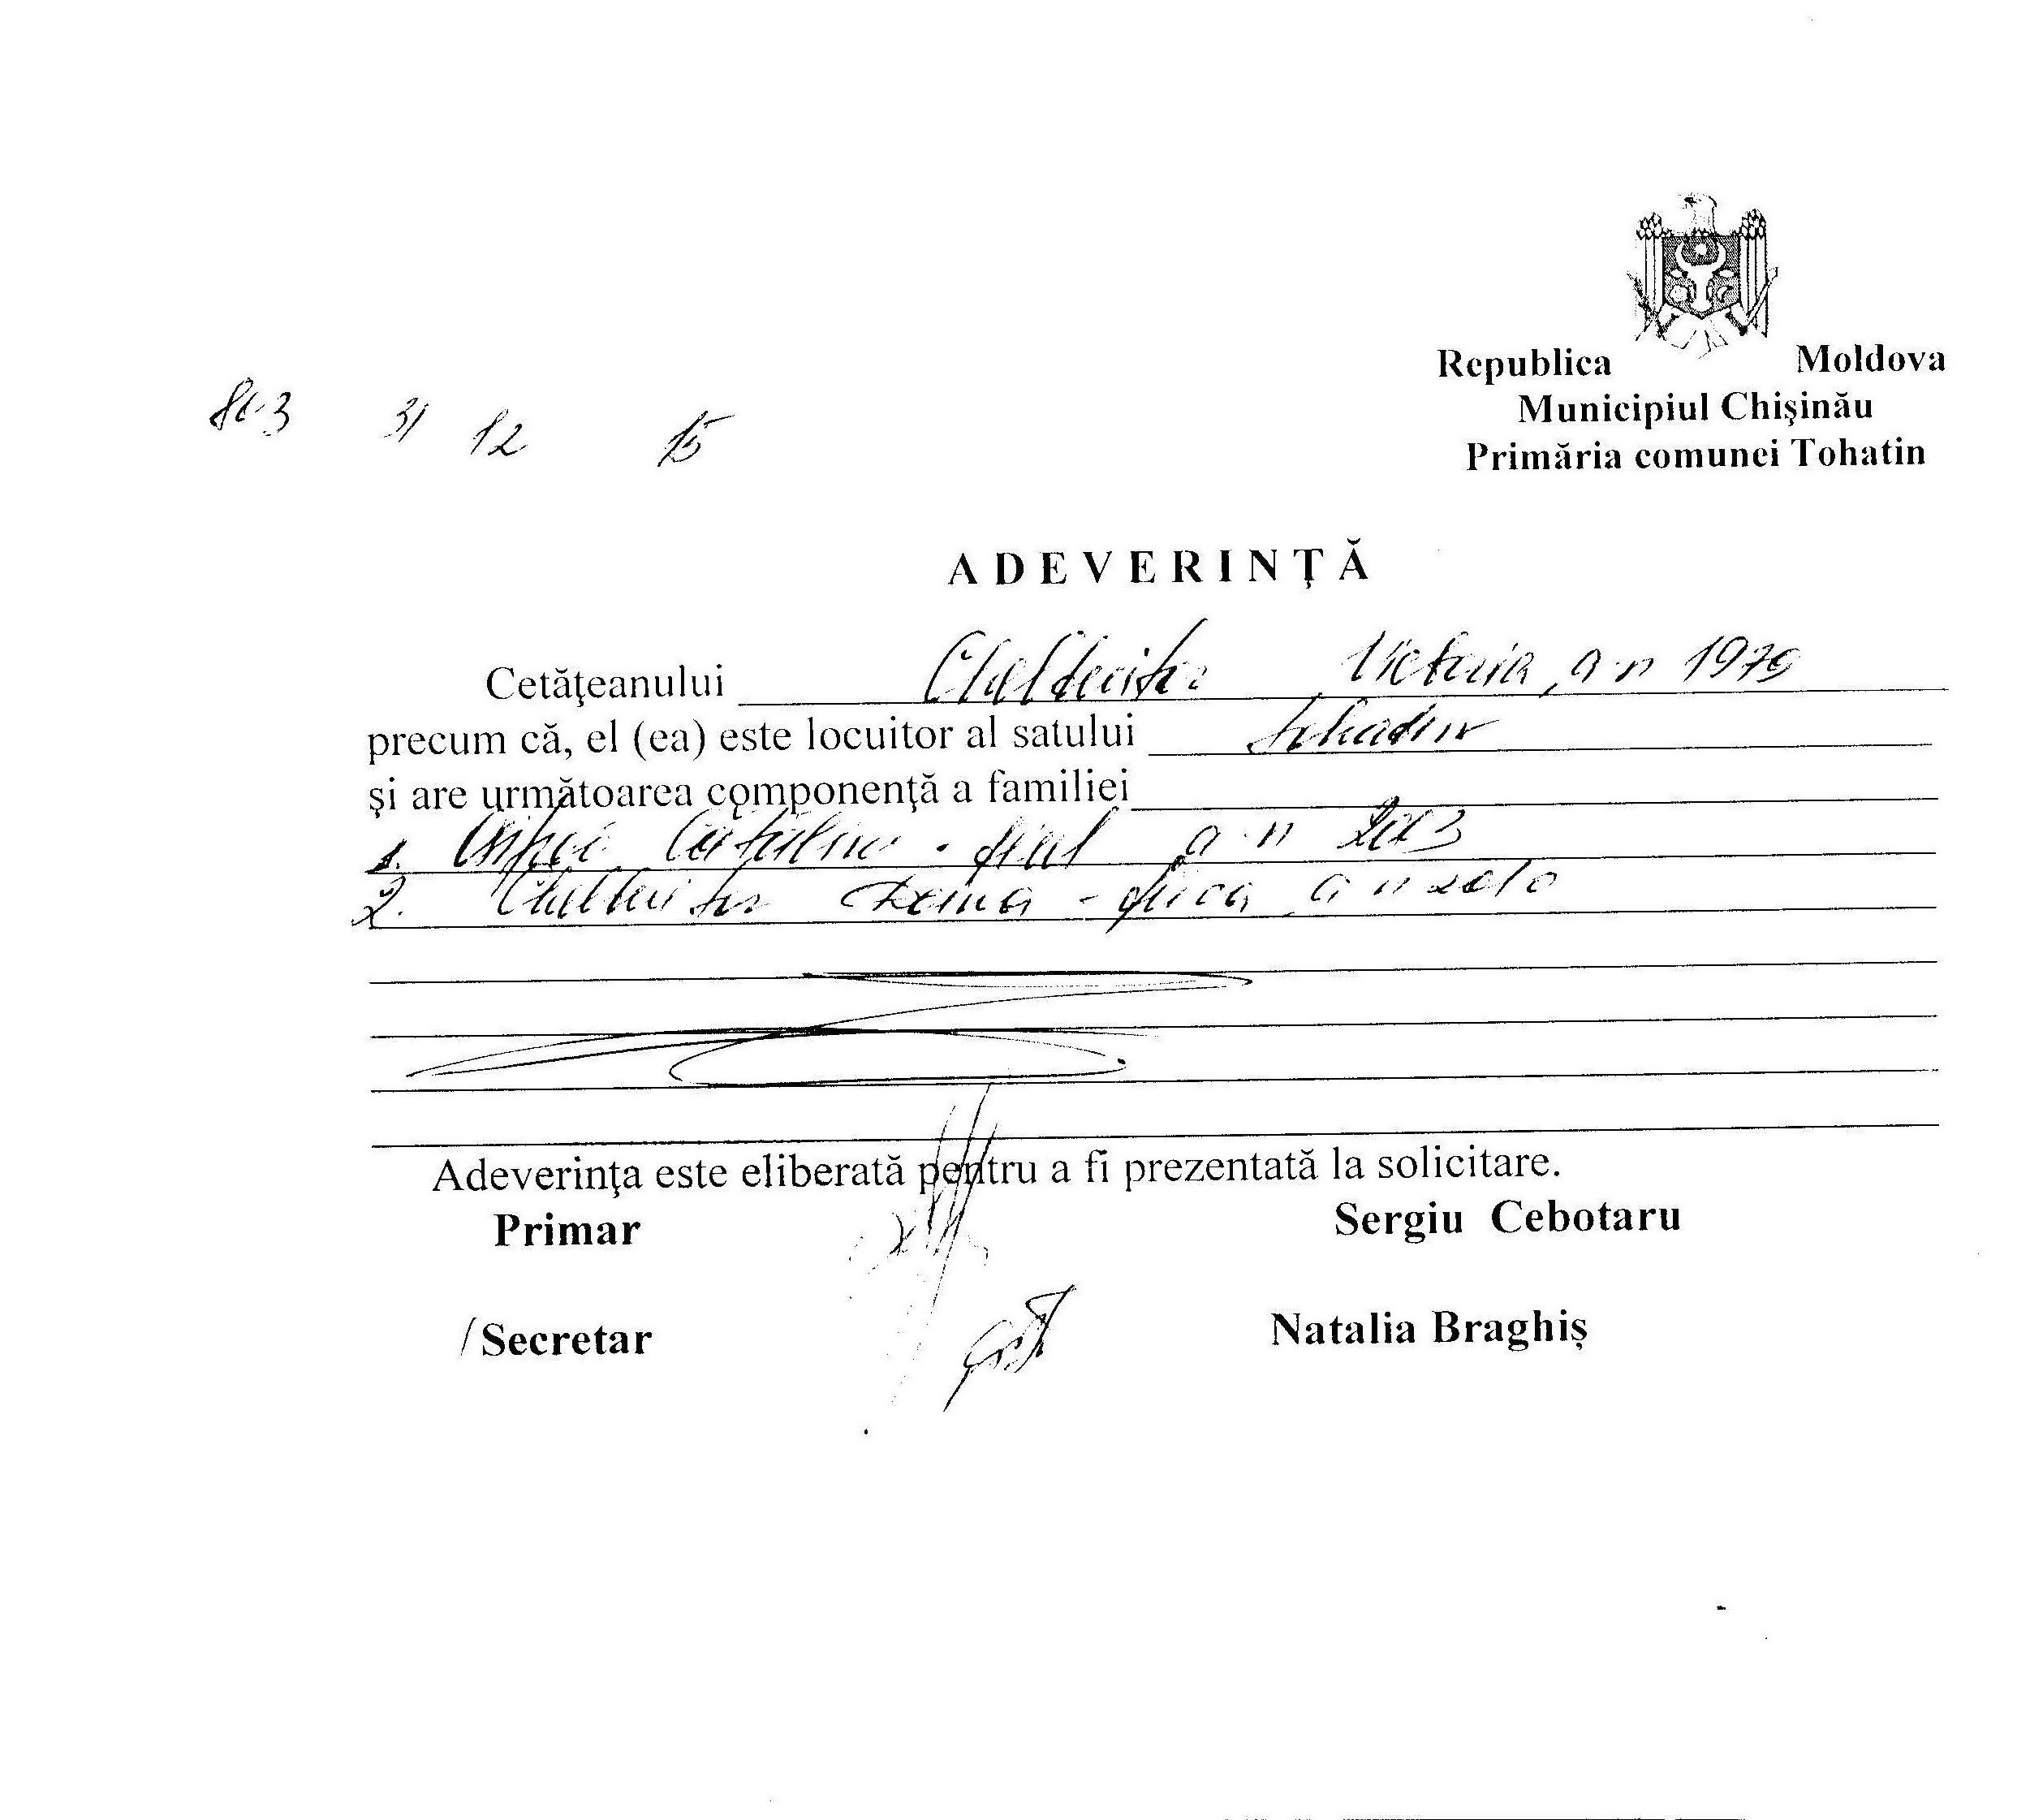 Republica Moldova
Municipiul Chişinău
Primăria comunei Tohatin
31 12 15
ADEVERINŢĂ
Cetăţeanului Victoria, a.n 1979
precum că, el (ea) este locuitor al satului Tohatin
şi are următoarea componenţă a familiei
1. Cătălin - fiul a.n 2003
2. - fiica a n 2010
Adeverinţa este eliberată pentru a fi prezentată la solicitare.
Primar Sergiu Cebotaru
/Secretar Natalia Braghiș